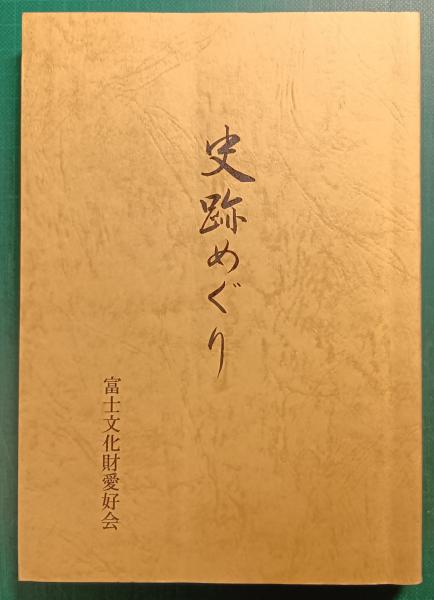 史跡めぐり
富士文化財愛好会